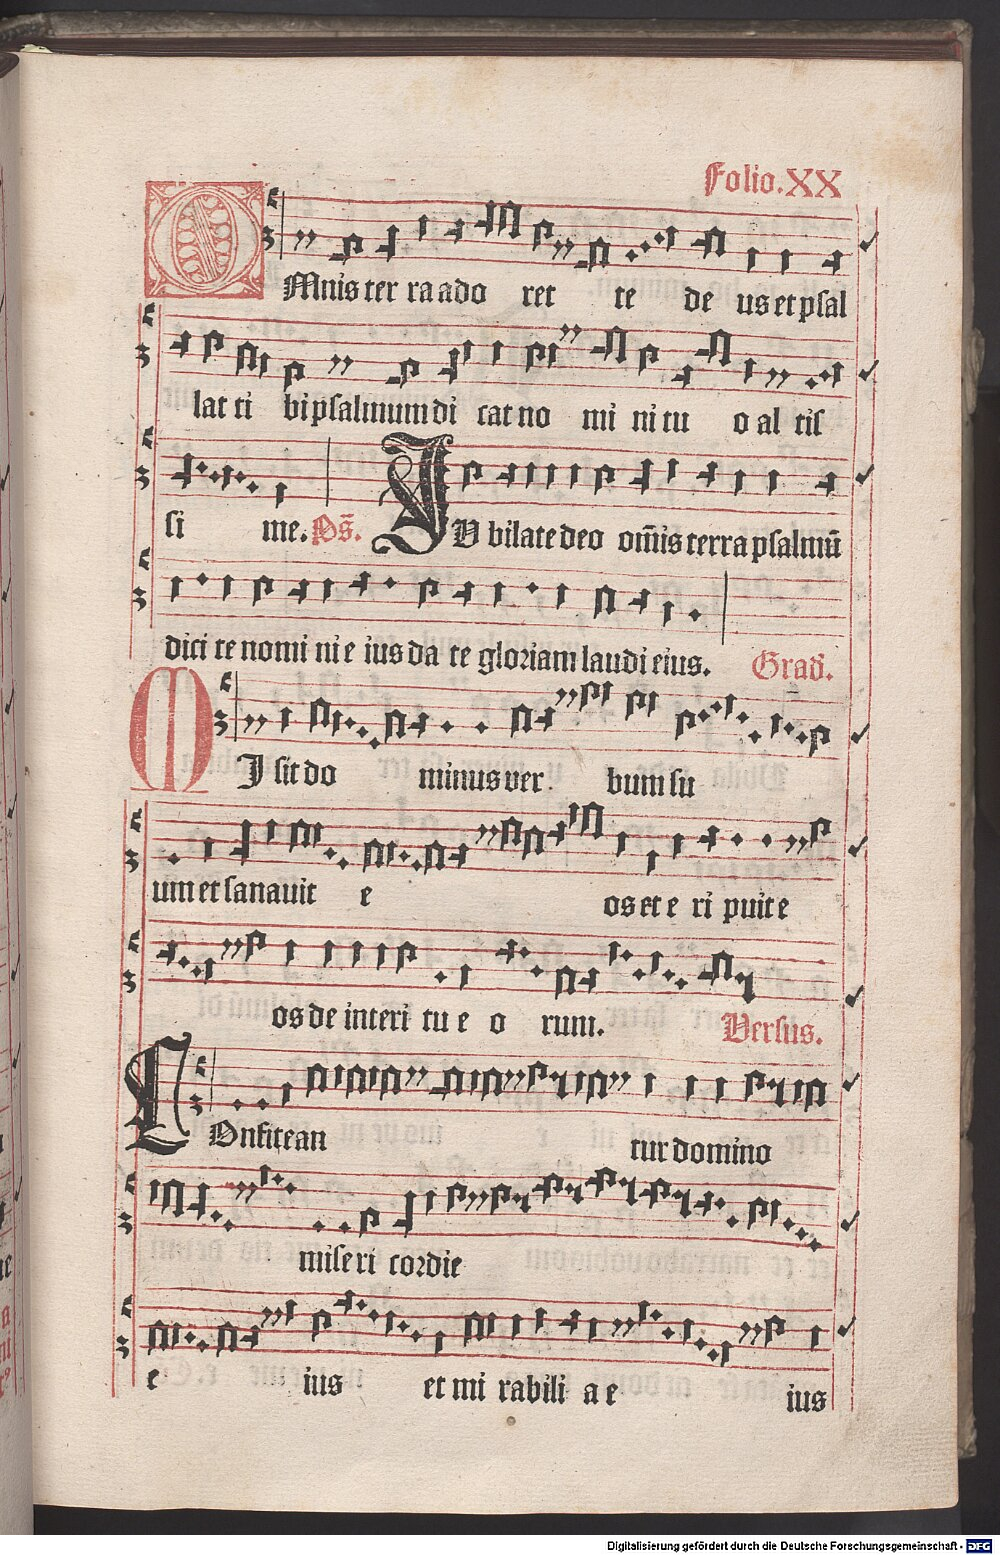 Folio.XX
OMnis ter ra ado ret te de us et psal
lat ti bi psalmum di cat no mi ni tu o al tis
si me. Ps̄. IU bilate deo om̄is terra psalmū
dici te nomi ni e ius da te gloriam laudi eius. Grad̄.
MI sit do minus ver bum su
um et sanavit e os et e ri puit e
os de interi tu e o rum. Versus.
COnfitean tur domino
mise ri cordie
e ius et mi rabili a e ius
Digitalisierung gefördert durch die Deutsche Forschungsgemeinschaft - DFG